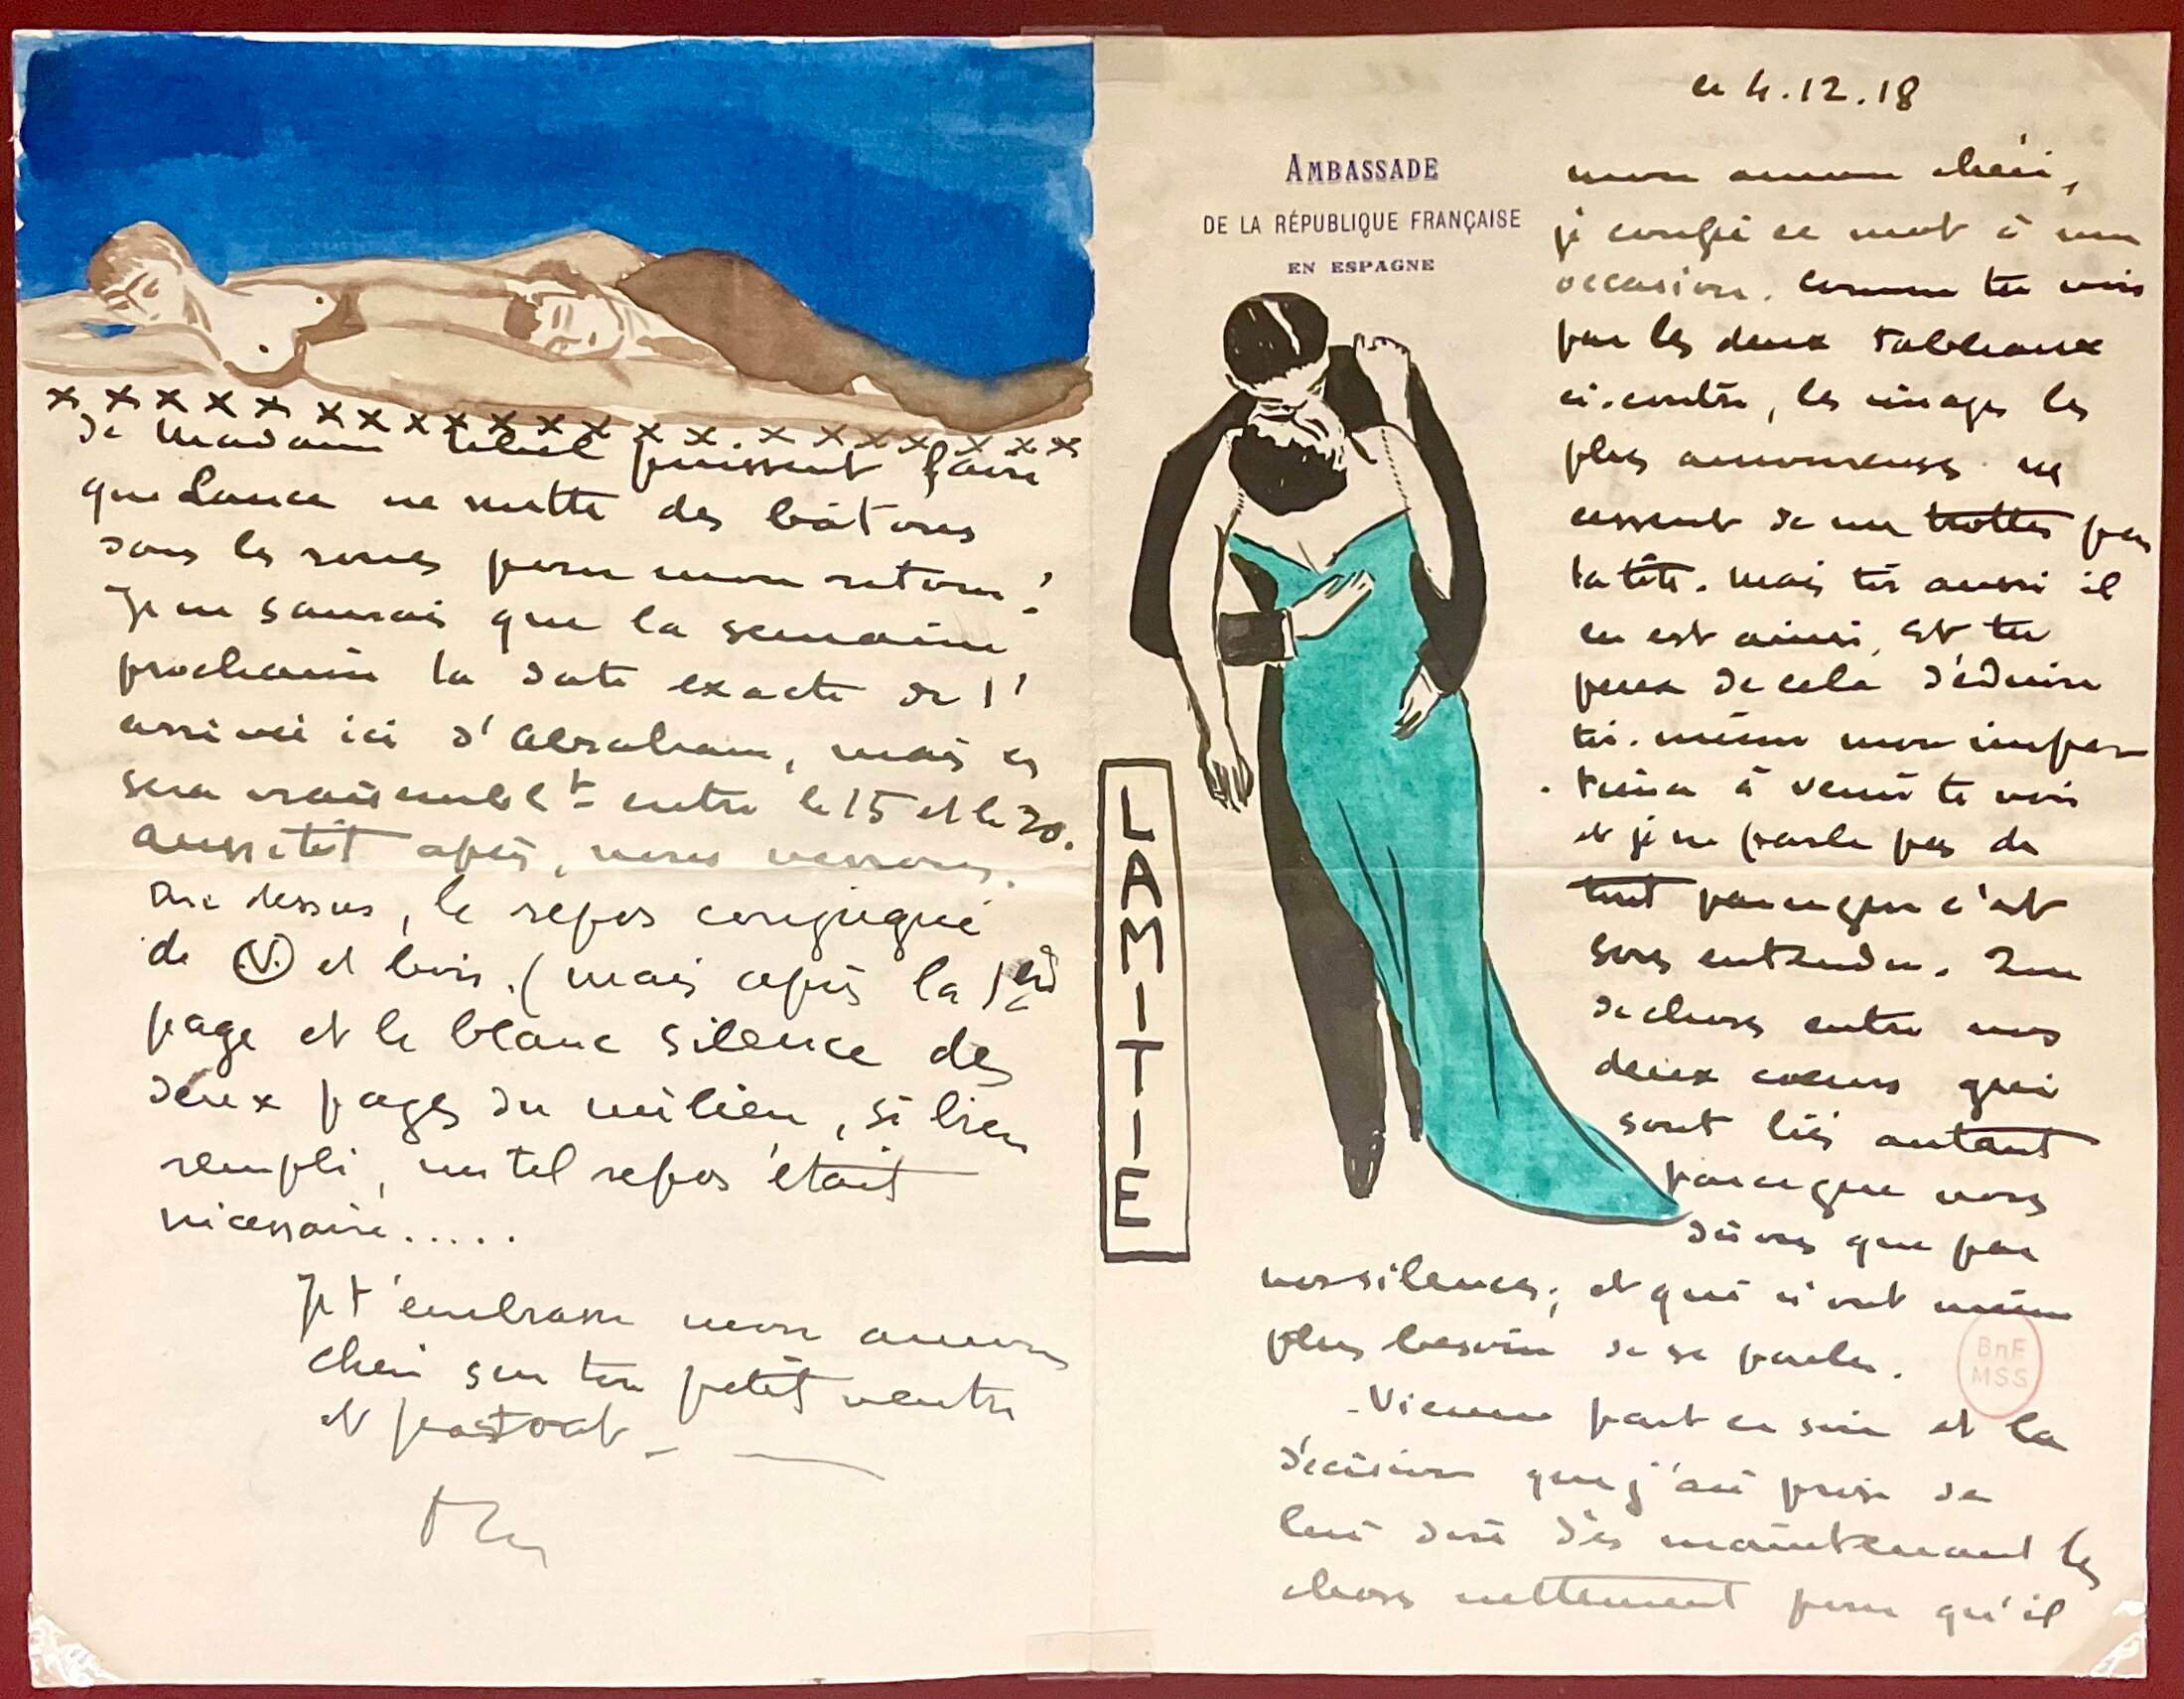 ce 4.12.18
AMBASSADE
DE LA RÉPUBLIQUE FRANÇAISE
EN ESPAGNE
mon amour chéri,
je confie ce mot à une
occasion. Comme tu vois
par les deux tableaux
ci-contre, les images les
plus amoureuses ne
cessent de me trotter par
la tête. Mais toi aussi il
en est ainsi, et tu
peux de cela déduire
toi-même mon impa-
tience à venir te voir
et je ne parle pas de
tout parce que c'est
sous entendu. Que
de choses entre nos
deux coeurs qui
sont liés autant
par ce que nous
disons que par
nos silences, et qui n'ont même
plus besoin de se parler.
LAMITIE
Vienne part ce soir et la
décision que j'ai prise de
lui dire dès maintenant les
choses nettement pour qu'il
x x x x x x x x x x x x x x x x x x x x x
de Madame puissent faire
que Lance ne mette des bâtons
dans les roues pour mon retour!
Je ne saurai que la semaine
prochaine la date exacte de l'
arrivée ici d'Abraham, mais ce
sera vraisemblt entre le 15 et le 20.
Aussitôt après, nous verrons.
Au dessus, le repos conjugué
de V et lui. (mais après la 1ère
page et le blanc silence des
deux pages du milieu, si bien
rempli, un tel repos était
nécessaire.....
Je t'embrasse mon amour
chéri sur ton petit ventre
et partout
BnF
MSS